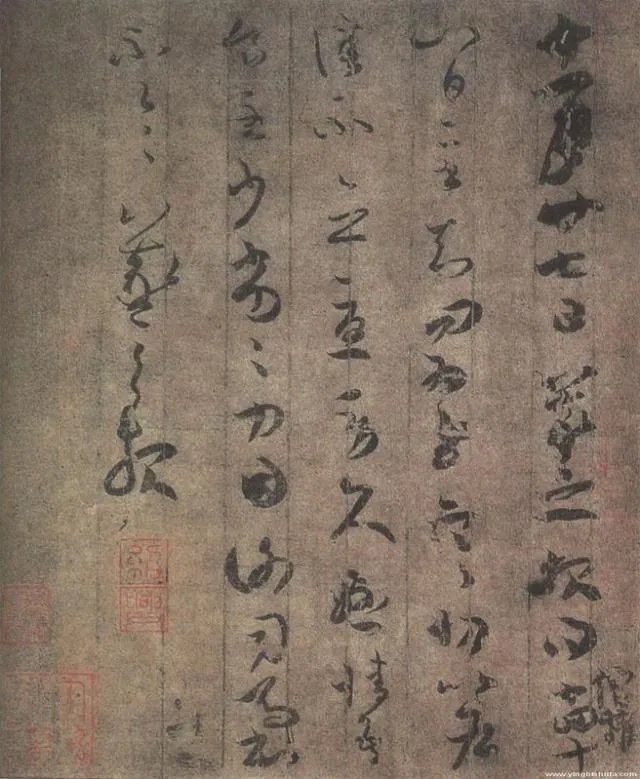 十一月廿七日羲之報得十四十
八日二書知問為慰寒切比各
佳不念憂勞久懸情吾
食至少劣劣力因謝司馬書
不一一羲之報
僧權
紹興
www.yingbishufa.com